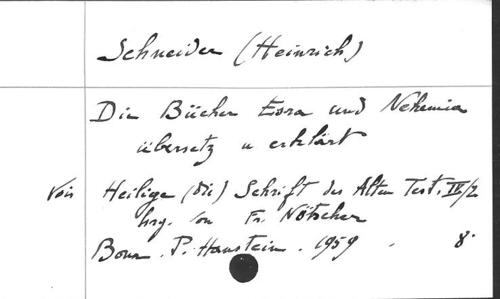 Schneider (Heinrich)
Die Bücher Esra und Nehemia
übersetz u erklärt
Voir Heilige (die) Schrift des Alten Test. IV/2
hrg. von Fr. Nötscher
Bonn . P. Hanstein . 1959 . 8°